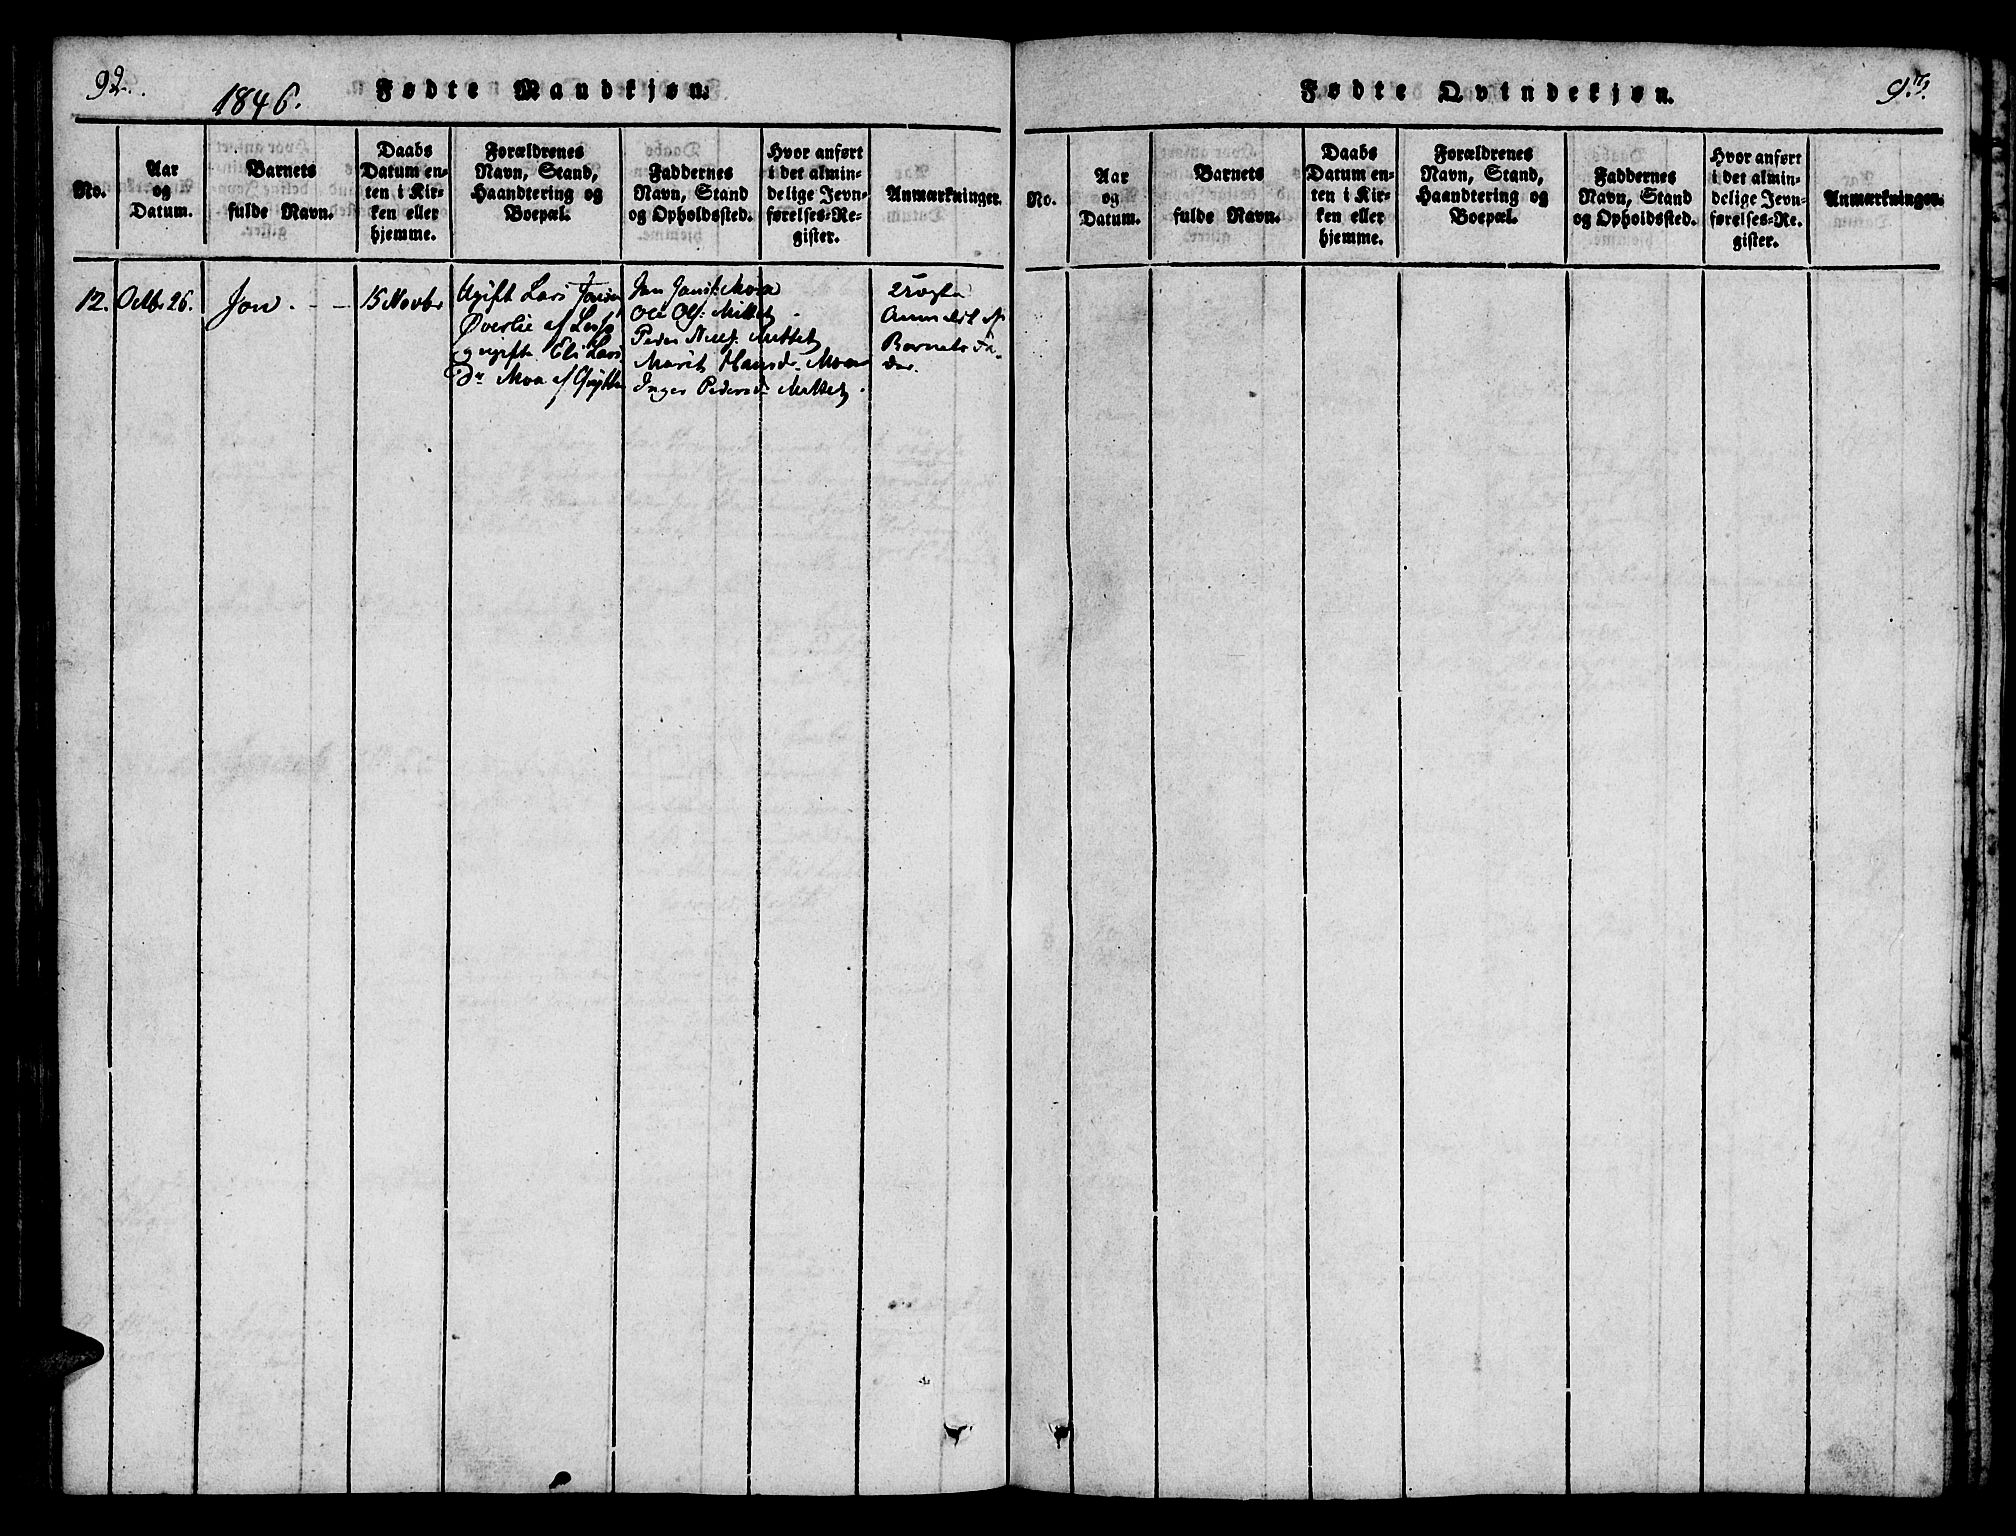 92.
1846.
Fødte Mandkjøn.
No.
Aar
og
Datum.
Barnets
fulde Navn.
Daabs
Datum en-
ten i Kir-
ken eller
hjemme.
Forældrenes
Navn, Stand,
Haandtering og
Boepæl.
Faddernes
Navn, Stand
og Opholdssted.
Hvor anført
i det almin-
delige Jevn-
førelses-Re-
gister.
Anmærkninger.
12.
Octbr 26.
Jon.
15 Novbr
Ugift Lars
Øverlie af
ugift Eli Lars
Dr Moa af
Moa
Ole Ols: Mittet
Peder Mittet
Marit Hansdr. Moa
Inger Pedersdr Mittet.
2
Anmeldt af
Barnets Fa-
der.
93.
Fødte Qvindekjøn.
No.
Aar
og
Datum.
Barnets
fulde Navn.
Daabs
Datum en-
ten i Kir-
ken eller
hjemme.
Forældrenes
Navn, Stand,
Haandtering og
Boepæl.
Faddernes
Navn, Stand
og Opholdssted.
Hvor anført
i det almin-
delige Jevn-
førelses-Re-
gister.
Anmærkninger.